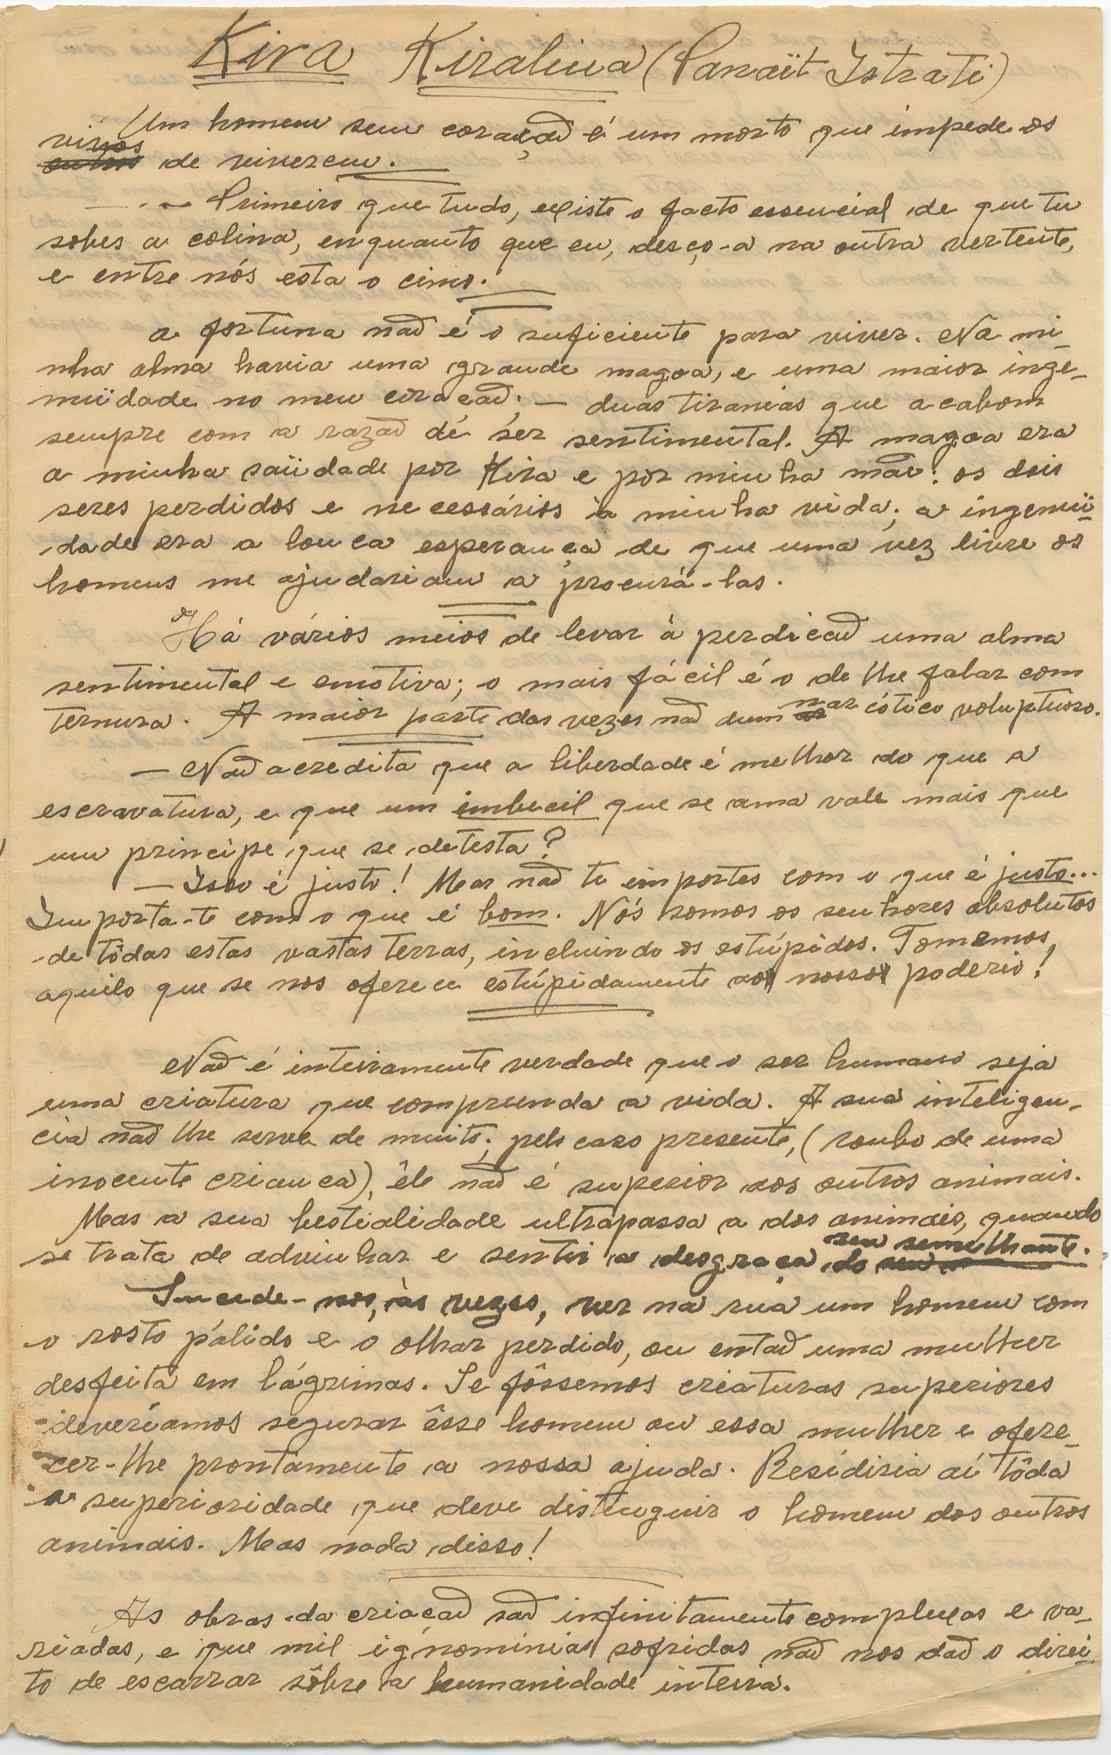 Kira Kiralina (Panaït Istrati)
Um homem sem coração é um morto que impede os
vivos
outros de viverem.
— . — Primeiro que tudo, existe o facto essencial de que tu
sobes a colina, enquanto que eu, desço-a na outra vertente,
e entre nós esta o cimo.
a fortuna não é o suficiente para viver. Na mi-
nha alma havia uma grande magoa, e uma maior inge-
nuïdade no meu coração; — duas tiranias que acabam
sempre com a razão de ser sentimental. A magoa era
a minha saüdade por Kira e por minha mãe: os dois
seres perdidos e necessários à minha vida; a ingenuï-
dade era a louca esperança de que uma vez livre os
homens me ajudariam a procurá-las.
Há vários meios de levar à perdição uma alma
sentimental e emotiva; o mais fácil é o de lhe falar com
ternura. A maior parte das vezes não dum narcótico voluptuoso.
— Não acredita que a liberdade é melhor do que a
escravatura, e que um imbecil que se ama vale mais que
um principe que se detesta?
— Isso é justo! Mas não te importes com o que é justo...
Importa-te com o que é bom. Nós somos os senhores absolutos
de tôdas estas vastas terras, incluindo os estúpidos. Tomemos
aquilo que se nos oferece estúpidamente ao nosso poderio!
Não é inteiramente verdade que o ser humano seja
uma criatura que compreenda a vida. A sua inteligen-
cia não lhe serve de muito; pelo caso presente, (roubo de uma
inocente criança), êle não é superior aos outros animais.
Mas a sua bestialidade ultrapassa a dos animais, quando
se trata de adivinhar e sentir a desgraça do seu
seu semelhante.
Sucede-nos, às vezes, ver na rua um homem com
o rosto pálido e o olhar perdido, ou então uma mulher
desfeita em lágrimas. Se fôssemos criaturas superiores
deveríamos segurar êsse homem ou essa mulher e ofere-
cer-lhe prontamente a nossa ajuda. Residiria aí tôda
a superioridade que deve distinguir o homem dos outros
animais. Mas nada disso!
As obras da criação são infinitamente complexas e va-
riadas, e que mil ignominias sofridas não nos dão o direi-
to de escarrar sôbre a humanidade inteira.